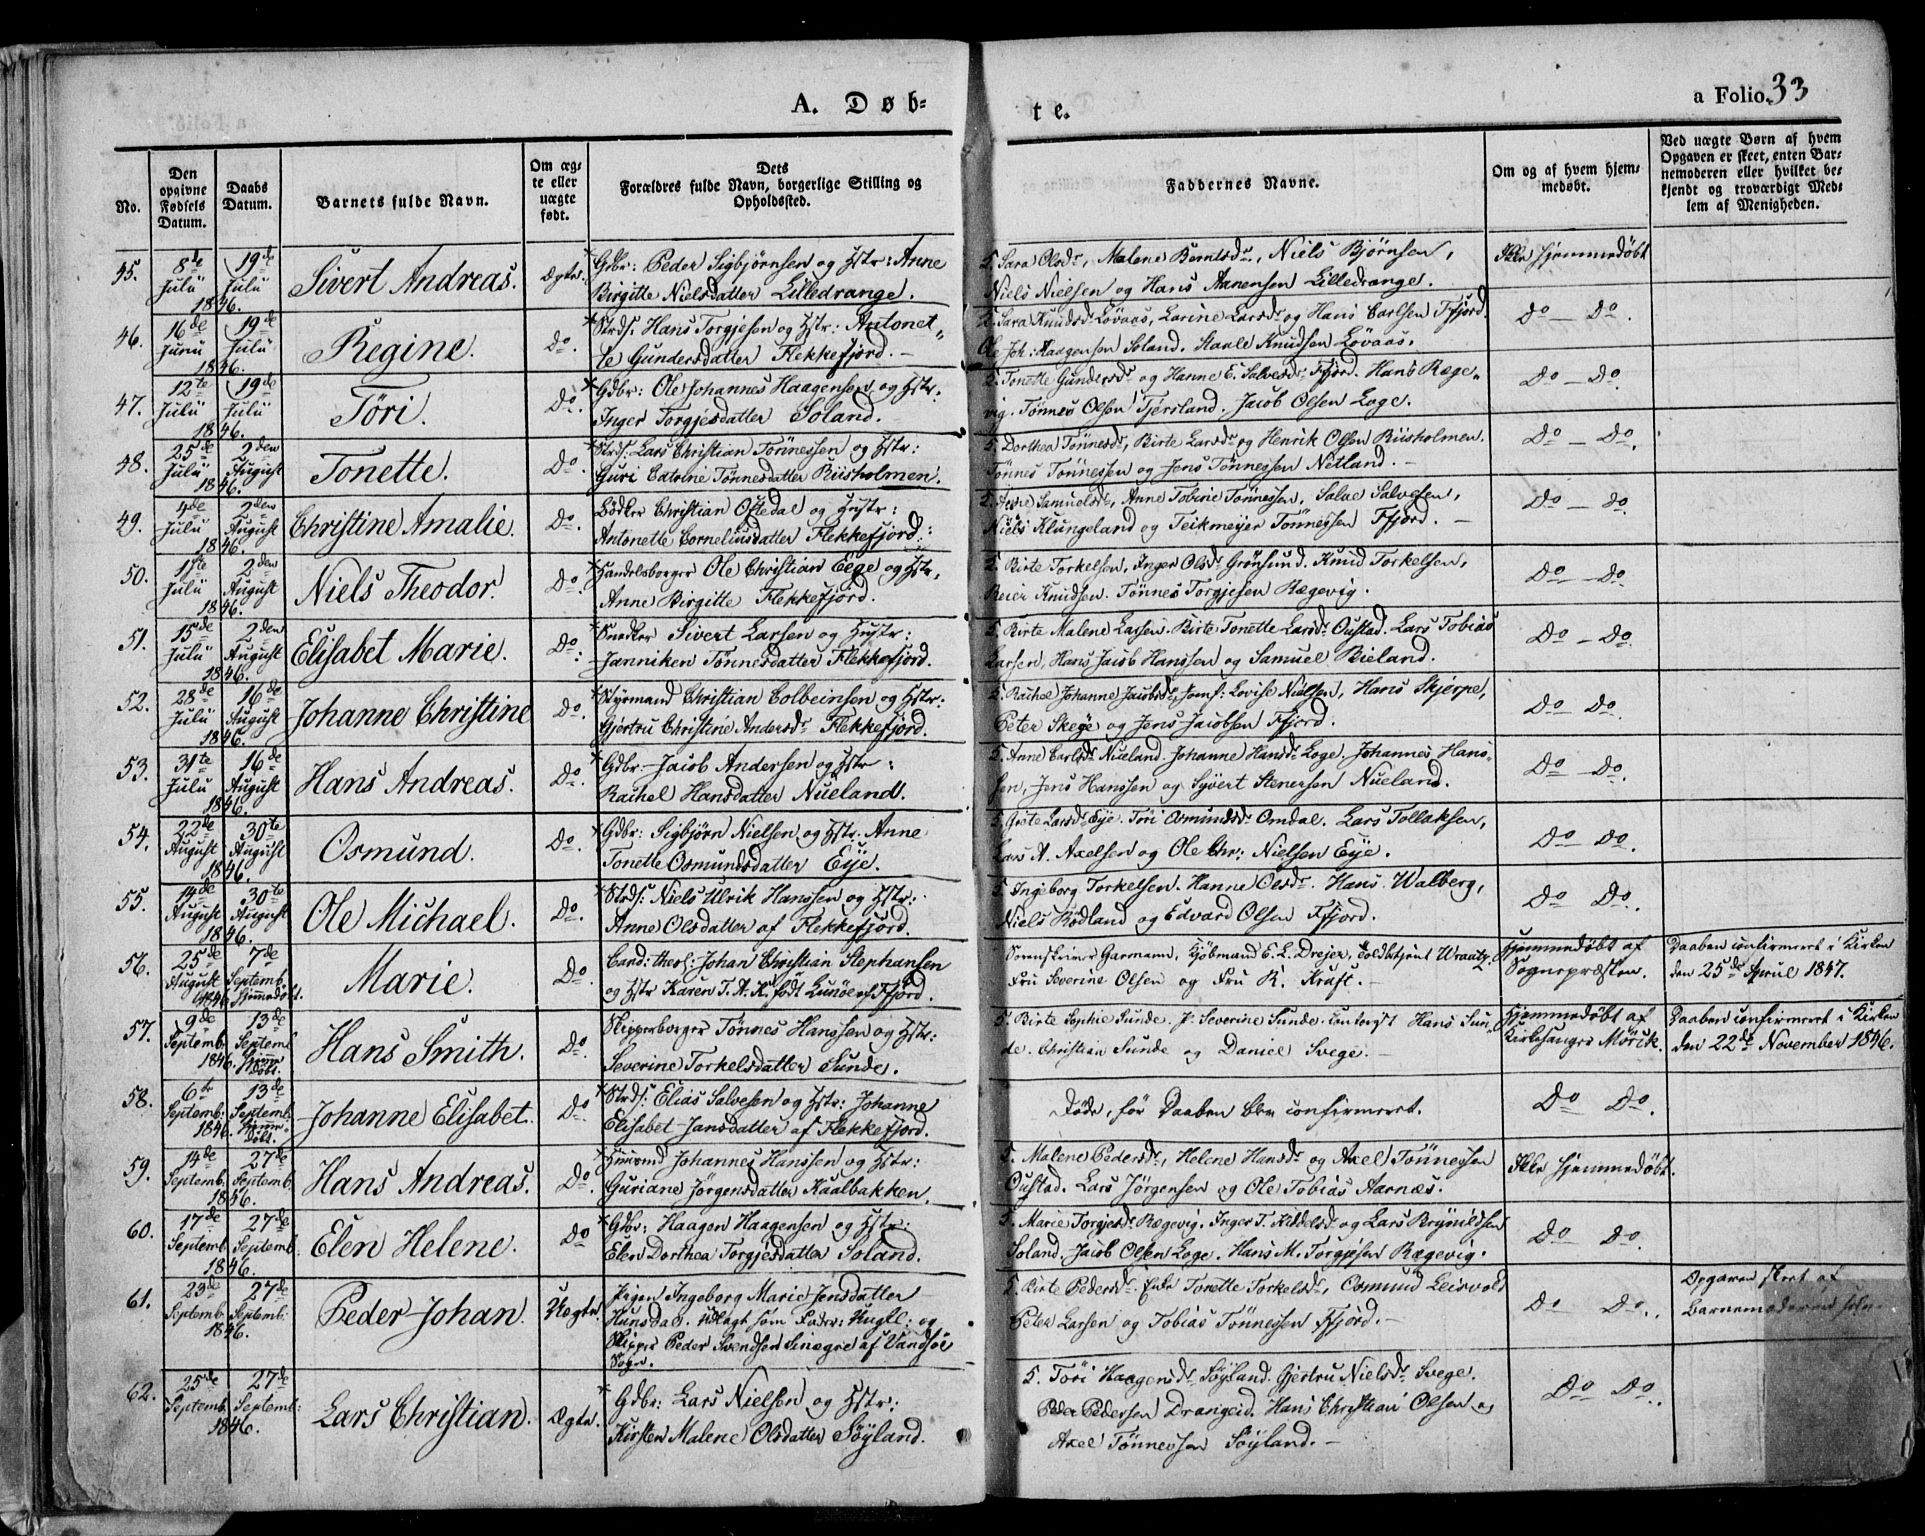 A. Døb=
te.
a Folio 33
No.
Den opgivne Fødsels Datum.
Daabs Datum.
Barnets fulde Navn.
Om æg=
te eller
uægte
født.
Dets
Forældres fulde Navn, borgerlige Stilling og
Opholdssted.
Faddernes Navne.
Om og af hvem hjem=
medøbt.
Ved uægte Børn af hvem
Opgaven er skeet, enten Bar=
nemoderen eller hvilket be=
kjendt og troværdigt Med=
lem af Menigheden.
45. 8de Julii 1846. 19de Julii Sivert Andreas. Ægte. Gdbr: Peder Sigbjørnsen og Hstr: Anne
Birgitte Nielsdatter Lilledrange.
5. Sara Olsdr, Malene Berntsdr, Niels Bjørnsen,
Niels Nielsen og Hans Aanensen Lilledrange.
Ikke hjemmedøbt
46. 16de Junii 1846. 19de Julii Regine. Do. Strds: Hans Torgjesen og Hstr: Antonet„
te Gundersdatter Flekkefjord. —
5. Sara Knudsdr Løvaas, Larine Larsdr og Hans Carlsen Ffjord.
Ole Joh: Haagensen Soland. Staale Knudsen Løvaas.
Do — Do.
47. 12te Julii 1846. 19de Julii Töri. Do. Gdbr: Ole Johannes Haagensen og Hstr.
Inger Torgjesdatter Soland.
5. Tonette Gundersdr og Hanne E. Salvesdr Ffjord. Hans Ræge„
vig. Tönnes Olsen Tjersland. Jacob Olsen Loge.
Do — Do.
48. 25de Julii 1846. 2den August Tonette. Do. Strds: Lars Christian Tönnessen og Hstr:
Guri Catrine Tönnesdatter Riisholmen.
5. Dorthea Tönnesdr, Birte Larsdr og Henrik Olsen Riisholmen.
Tönnes Tönnessen og Jens Tönnessen Netland. —
Do — Do.
49. 4de Julii 1846. 2den August Christine Amalie. Do. Bödker Christian Oftedal og Hustr:
Antonette Corneliusdatter Flekkefjord.
5. Samuelsdr, Anne Tobine Tönnessen, Salve Salvesen,
Niels Klungeland og Teikmeyer Tönnessen Ffjord. —
Do — do.
50. 1ste Julii 1846. 2den August Niels Theodor. Do. Handelsborger Ole Christian Eege og Hstr,
Anne Birgitte Flekkefjord.
5. Birte Torkelsen, Inger Olsdr Grønsund. Knud Torkelsen,
Reier Knudsen. Tönnes Torgjesen Rægevig.
Do — Do.
51. 15de Julii 1846. 2den August Elisabet Marie. Do. Snedker Sivert Larsen og Hustr:
Janniken Tönnesdatter Flekkefjord.
5. Birte Malene Larsen. Birte Tonette Larsdr Oustad. Lars Tobias
Larsen, Hans Jacob Hanssen og Samuel Bieland.
Do — Do.
52. 28de Julii 1846. 16de August Johanne Christine Do. Styrmand Christian Colbeinsen og Hstr:
Gjertru Christine Andersdr Flekkefjord.
5. Rachel Johanne Jacobsdr, Jomf: Lovise Nielsen, Hans Skjerpe,
Peter Skeye og Jens Jacobsen Ffjord.
Do Do.
53. 31te Julii 1846. 16de August Hans Andreas. Do. Gdbr: Jacob Andersen og Hstr:
Rachel Hansdatter Nueland.
5. Anne Carlsdr Nueland. Johanne Hansdr Loge. Johannes Hans„
sen, Jens Hanssen og Syvert Stenersen Nueland.
Do — Do.
54. 22de August 1846. 30te August Osmund. Do. Gdbr: Sigbjørn Nielsen og Hstr. Anne
Tonette Osmundsdatter Eye.
5. Grete Larsdr Eye. Töri Osmundsdr Omdal. Lars Tollaksen,
Lars A. Axelsen og Ole Chr: Nielsen Eye.
Do Do.
55. 14de August 1846. 30te August Ole Michael. Do. Strds: Niels Ulrik Hanssen og Hstr:
Anne Olsdatter af Flekkefjord.
5. Ingeborg Torkelsen. Hanne Olsdr. Hans Walberg,
Niels Rödland og Edvard Olsen Ffjord.
Do Do.
56. 25de August 1846. 7de Septemb. Hjemmedøbt. Marie. Do. Cand: theol: Johan Christian Stephansen
og Hstr Karen T. A. K. født Lunöe af Ffjord.
Sorenskriver Garmann, Kjöbmand E. L. Drejer, Toldbetjent
Fru Severine Olsen og Fru R. Kraft. —
Hjemmedøbt af
Sognepræsten.
Daaben confirmeret i Kirken
den 25de April 1847.
57. 9de Septemb. 1846. 13de Septemb Hjemmedøbt. Hans Smith. Do. Skipperborger Tönnes Hanssen og Hstr:
Severine Torkelsdatter Sunde.
5. Birte Sophie Sunde. J: Severine Sunde. Hans Sun„
de. Christian Sunde og Daniel Svege. —
Hjemmedøbt af
Kirkesanger Mörck.
Daaben confirmeret i Kirken
den 22de November 1846.
58. 6te Septemb: 1846. 13de Septemb. Hjemmedøbt. Johanne Elisabet. Do. Strds: Elias Salvesen og Hstr: Johanne
Elisabet Jansdatter af Flekkefjord.
Døde, før Daaben blev confirmeret.
Do Do.
59. 14de Septemb. 1846. 27de Septemb. Hans Andreas. Do. Huusmd Johannes Hanssen og Hstr:
Guriane Jörgensdatter Kaalbakken.
5. Malene Pedersdr, Helene Hansdr og Axel Tönnessen
Oustad. Lars Jörgensen og Ole Tobias Aarnæs.
Ikke hjemmedøbt.
60. 17de Septemb 1846. 27de Septemb Elen Helene. Do Gdbr: Haagen Haagensen og Hstr:
Elen Dorthea Torgjesdatter Soland.
5. Marie Torgjesdr Rægevig. Inger T. Kiddelsdr og Lars Brynildsen
Soland. Jacob Olsen Loge. Hans M. Torgjesen Rægevig.
Do Do.
61. 23de Septemb. 1846. 27de Septemb. Peder Johan. Uægte. Pigen Ingeborg Marie Jensdatter
Hunsdal. Udlagt som Fader: Ungk: og
Skipper Peder Svendsen Sinægre af Vandsöe
Sogn.
5. Birte Pedersdr. Enke Tonette Torkelsdr, Osmund Leisvold
Peter Larsen og Tobias Tönnessen Ffjord. —
Do Do.
Opgaven skeet af
Barnemoderen selv.
62. 25de Septemb. 1846. 27de Septemb: Lars Christian. Ægte. Gdbr: Lars Nielsen og Hstr:
Kirsten Malene Olsdatter Söyland.
5. Töri Haagensdr Söyland. Gjertru Nielsdr Svege.
Peder Pedersen Drangeid. Hans Christian Olsen og
Axel Tönnessen Söyland. —
Do Do.